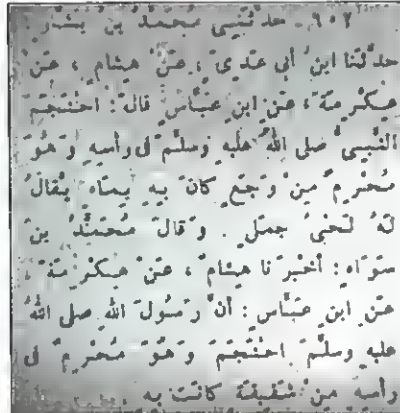 ٦٠٢ - حدثني محمد بن بشار
حدثنا ابن أبي عدى ، عن هشام ، عن
عكرمة ، عن ابن عباس قال : احتجم
النبي صلى الله عليه وسلم فى رأسه وهو
محرم من وجع كان به بماء يقال
له لحى جمل . وقال محمد بن
سواء : أخبرنا هشام ، عن عكرمة ،
عن ابن عباس : أن رسول الله صلى الله
عليه وسلم احتجم وهو محرم فى
رأسه من شقيقة كانت به